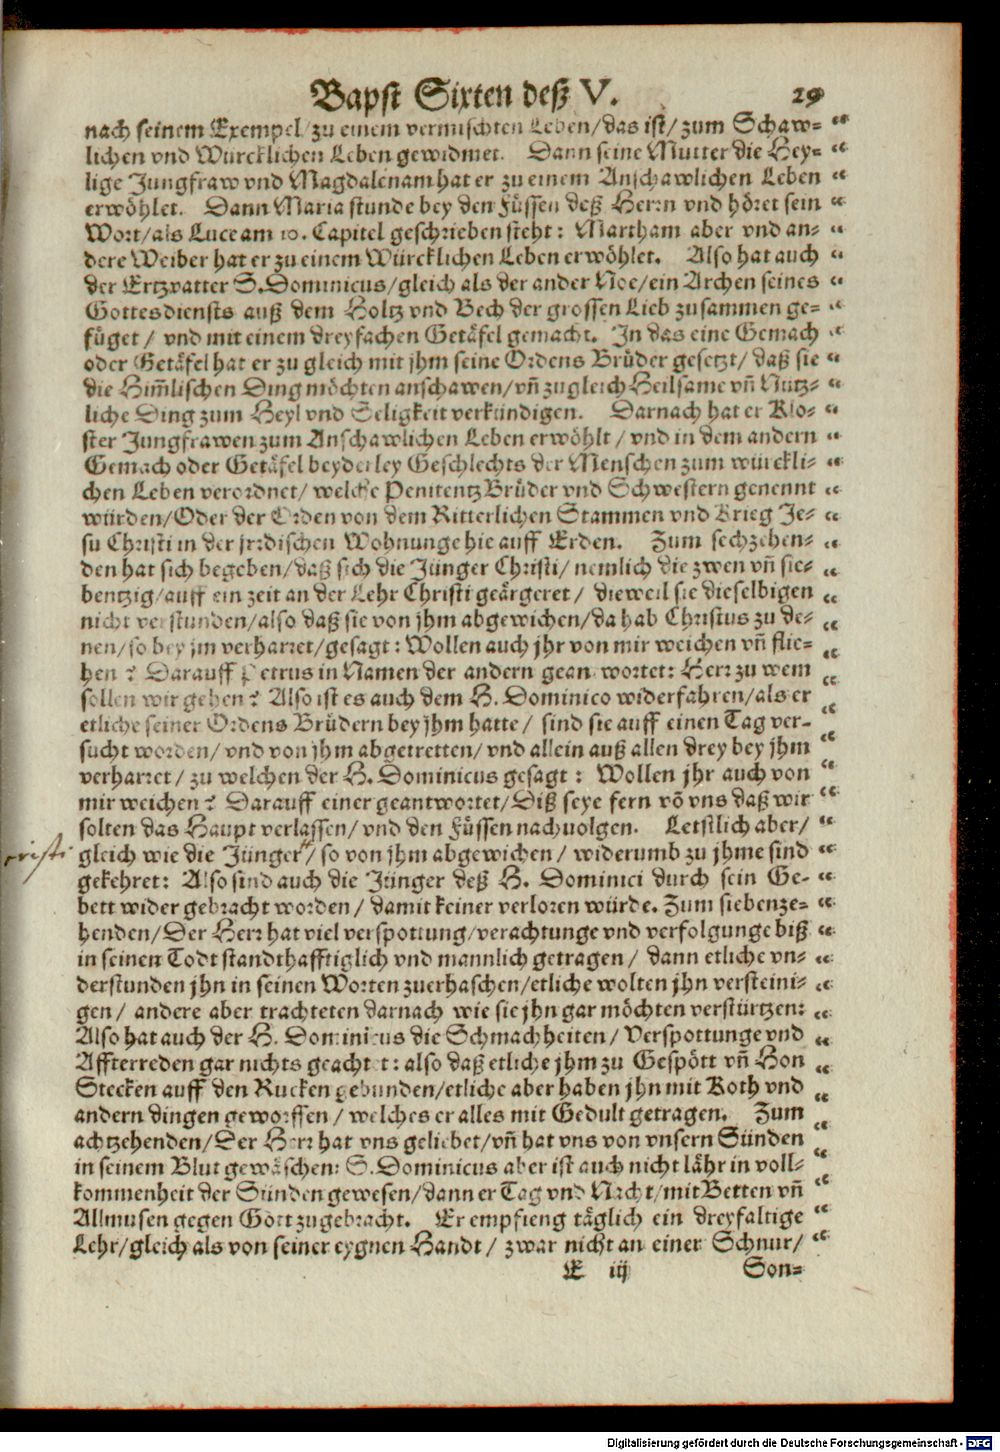 Bapst Sixten deß V. 29
nach seinem Exempel/zu einem vermischten Leben/das ist/zum Schaw= “
lichen vnd Würcklichen Leben gewidmet. Dann seine Mutter die Hey= “
lige Jungfraw vnd Magdalenam hat er zu einem Anschawlichen Leben “
erwöhlet. Dann Maria stunde bey den Füssen deß Herrn vnd höret sein “
Wort/als Luce am 10. Capitel geschrieben steht: Martham aber vnd an= “
dere Weiber hat er zu einem Würcklichen Leben erwöhlet. Also hat auch “
der Ertzvatter S. Dominicus/gleich als der ander Noe/ein Archen seines “
Gottesdiensts auß dem Holtz vnd Bech der grossen Lieb zusammen ge= “
füget / vnd mit einem dreyfachen Getäfel gemacht. In das eine Gemach “
oder Getäfel hat er zu gleich mit jhm seine Ordens Brüder gesetzt/ daß sie “
die Him̃lischen Ding möchten anschawen/vn̄ zugleich Heilsame vn̄ Nütz= “
liche Ding zum Heyl vnd Seligkeit verkündigen. Darnach hat er Klo= “
ster Jungfrawen zum Anschawlichen Leben erwöhlt / vnd in dem andern “
Gemach oder Getäfel beyderley Geschlechts der Menschen zum würckli= “
chen Leben verordnet/ welche Penitentz Brüder vnd Schwestern genennt “
würden/Oder der Orden von dem Ritterlichen Stammen vnd Krieg Je= “
su Christi in der jrrdischen Wohnunge hie auff Erden. Zum sechzehen= “
den hat sich begeben/daß sich die Jünger Christi/ nemlich die zwen vn̄ sie= “
bentzig/auff ein zeit an der Lehr Christi geärgeret / dieweil sie dieselbigen “
nicht verstunden/also daß sie von jhm abgewichen/da hab Christus zu de= “
nen/so bey jm verharret/gesagt: Wollen auch jhr von mir weichen vn̄ flie= “
hen ? Darauff Petrus in Namen der andern geantwortet: Herr zu wem “
sollen wir gehen? Also ist es auch dem H. Dominico widerfahren/als er “
etliche seiner Ordens Brüdern bey jhm hatte / sind sie auff einen Tag ver= “
sucht worden/ vnd von jhm abgetretten/ vnd allein auß allen drey bey jhm “
verharret/ zu welchen der H. Dominicus gesagt : Wollen jhr auch von “
mir weichen ? Darauff einer geantwortet/Diß seye fern vō vns daß wir “
solten das Haupt verlassen/ vnd den Füssen nachuolgen. Letstlich aber/ “
gleich wie die Jünger/ so von jhm abgewichen / widerumb zu jhme sind “
gekehret: Also sind auch die Jünger deß H. Dominici durch sein Ge= “
bett wider gebracht worden / damit keiner verloren würde. Zum siebenze= “
henden/Der Herr hat viel verspottung/verachtunge vnd verfolgunge biß “
in seinen Todt standthafftiglich vnd mannlich getragen / dann etliche vn= “
derstunden jhn in seinen Worten zuerhaschen/etliche wolten jhn versteini= “
gen / andere aber trachteten darnach wie sie jhn gar möchten verstürtzen: “
Also hat auch der H. Dominicus die Schmachheiten / Verspottunge vnd “
Affterreden gar nichts geachtet: also daß etliche jhm zu Gespött vn̄ Hon “
Stecken auff den Rucken gebunden/etliche aber haben jhn mit Koth vnd “
andern dingen geworffen / welches er alles mit Gedult getragen. Zum “
achtzehenden/Der Herr hat vns geliebet/vn̄ hat vns von vnsern Sünden “
in seinem Blut gewäschen: S. Dominicus aber ist auch nicht lähr in voll= “
kommenheit der Sünden gewesen/dann er Tag vnd Nacht/mit Betten vn̄ “
Allmusen gegen Gott zugebracht. Er empfieng täglich ein dreyfaltige “
Lehr/gleich als von seiner eygnen Handt / zwar nicht an einer Schnur/ “
E iij Son=
Digitalisierung gefördert durch die Deutsche Forschungsgemeinschaft - DFG